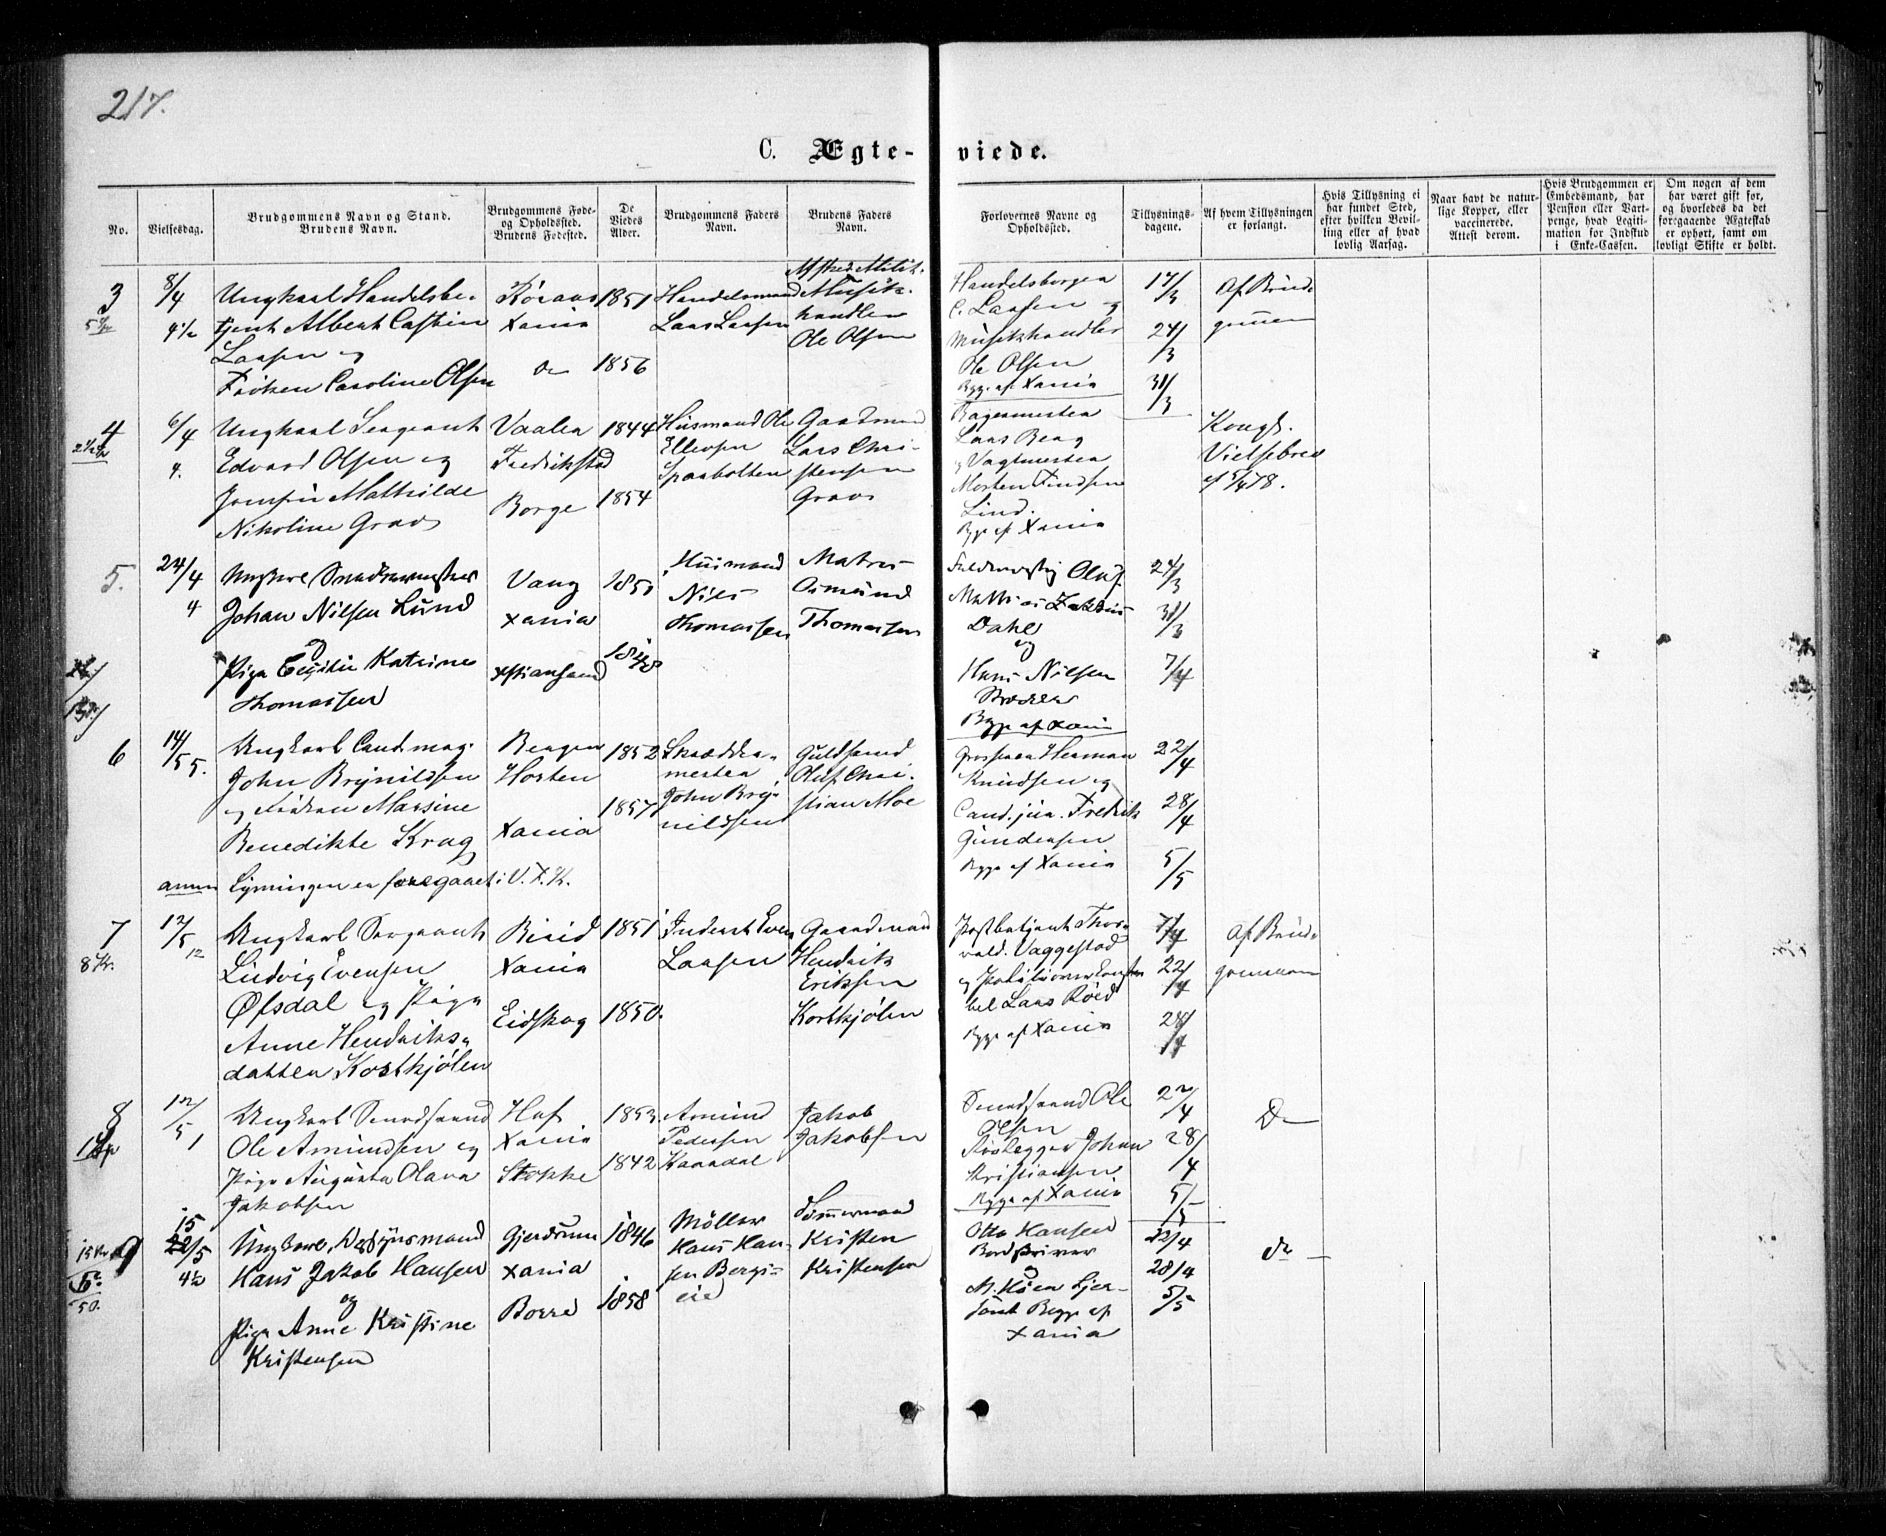 217.
C. Ægte-
viede.
No.
Vielsesdag.
Brudgommens Navn og Stand.
Brudens Navn.
Brudgommens Føde-
og Opholdssted.
Brudens Fødested.
De
Viedes
Alder.
Brudgommens Faders
Navn.
Brudens Faders
Navn.
Forlovernes Navne og
Opholdssted.
Tillysnings-
dagene.
Af hvem Tillysningen
er forlangt.
Hvis Tillysning ei
har fundet Sted,
efter hvilken Bevil-
ling eller af hvad
lovlig Aarsag.
Naar havt de natur-
lige Kopper, eller
vaccinerede.
Attest derom.
Hvis Brudgommen er
Embedsmand, har
Pension eller Vart-
penge, hvad Legiti-
mation for Indskud
i Enke-Cassen.
Om nogen af dem
har været gift før,
og hvorledes da det
forgaaende Ægteskab
er ophørt, samt om
lovligt Skifte er holdt.
3
8/4
4 1/2
Ungkarl Handelsbe-
tjent Albert Castein
Larsen og
Frøken Caroline Olsen
Xania
Do
1851
1856
Handelsmand
Lars Larsen
Musik-
handler
Ole Olsen
Handelsborger
C. Larsen og
Musikhandler
Ole Olsen
Begge af Xania
17/3
24/3
31/3
Af Brud-
gommen
4
6/4
4.
Ungkarl Sergeant
Edvard Olsen og
Jomfru Mathilde
Nikoline Graas
Vaaler
Fredrikstad
Borge
1844
1854
Husmand Ole
Ellevsen
Spaabolten
Gaardmand
Lars Chri-
stensen
Graas
Bagermester
Lars Berg
og Vagtmester
Morten Findsen
Lind.
Begge af Xania
Kongl.
Vielsebrev
af 5/4 78.
5.
24/4
4
Ungkarl Snedkermester
Johan Nilsen Lund
og
Pige Cecilie Katrine
Thomassen
Vang
Xania
Xstiansand
1850
1848
Husmand
Nils
Thomassen
Matros
Osmund
Thomassen
Fuldmægtig Oluf
Dahl
og
Hans Nilsen
Begge af Xania
24/3
31/3
7/4
6
14/5
5.
Ungkarl Cand. mag.
John Brynildsen
og Frøken Marsine
Benedikte Krag
Bergen
Horten
Xania
1852
1857
Skrædder-
mester
John Bry-
nildsen
Guldsmed
Oluf Chri-
stian Moe
Grosserer Herman
Knudsen og
Cand. jur. Fredrik
Gundersen
Begge af Xania
22/4
28/4
5/5
anm
Lysningen er foregaaet i V. F. K.
7
8 Kr.
12/5
12
Ungkarl Sergeant
Ludvig Evensen
Øfsdal og Pige
Anne Hendriks-
datter Kortkjølen
Birid
Xania
Eidskog
1851
1850.
Inderst Even
Larsen
Gaardmand
Hendrik
Eriksen
Kortkjølen
Postbetjent Thor-
vald. Vaggestad
og Politioverkonsta-
bel Lars Røed
Begge af Xania
7/4
22/4
28/4
Af Brud-
gommen
8
12/5
1
Ungkarl Smedsvend
Ole Amundsen og
Pige Augusta Olava
Jakobsen
Hof
Xania
Stokke
1853.
1842
Amund
Pedersen
Kaasdal
Jakob
Jakobsen
Smedsvend Ole
Olsen
Rørlegger Johan
Kristiansen
Begge af Xania
22/4
28/4
5/5
Do
9
15
22/5
4 1/2
Ungkarl
Hans Jakob Hansen
og
Pige Anne Kristine
Kristensen
Gjerdrum
Xania
Borre
1846
1858
Møller
Hans Han-
sen Bergs-
eie
Tømmermand
Kristen
Kristensen
Otto Hansen
Bordskriver
og
Begge af
Xania
22/4
28/4
5/5
do